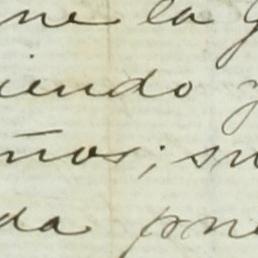 ne la
iendo y
ños; su
da pue